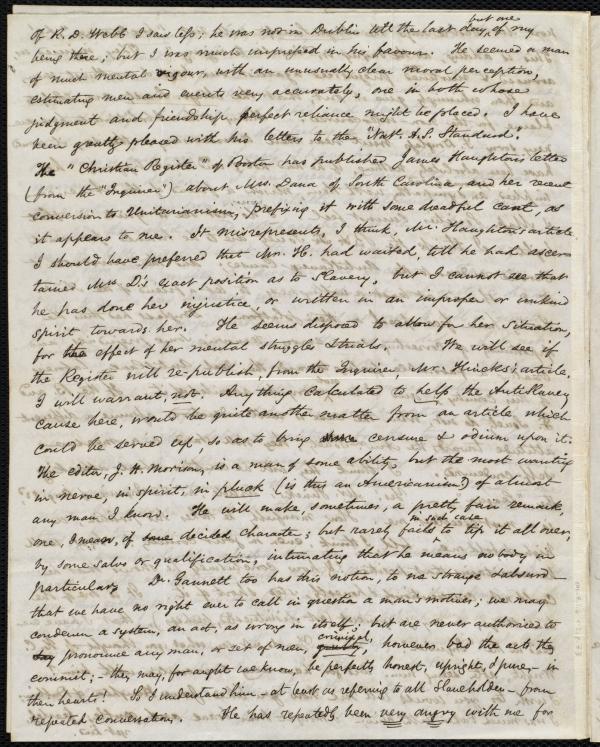 but one
Of R. D. Webb I saw less; he was not in Dublin till the last day, of my
being there; but I was much impressed in his favour. He seemed a man
of much mental vigour, with an unusually clear moral perception,
estimating men and events very accurately, one in both whose
judgment and friendship perfect reliance might be placed. I have
been greatly pleased with his letters to the "Nat. A. S. Standard".
The "Christian Register" of Boston has published James Haughton's letter
(from the "Inquirer") about Mrs. Dana of South Carolina, and her recent
conversion to Unitarianism, prefixing it with some dreadful cant, as
it appears to me. It misrepresents, I think, Mr. Haughton's article
I should have preferred that Mr. H. had waited, till he had ascer-
tained Mrs D's exact position as to Slavery, but I cannot see that
he has done her injustice, or written in an improper or unkind
spirit towards her. He seems disposed to allow for her situation,
for the effect of her mental struggles & trials. We will see if
the Register will re-publish, from the Inquirer, Mr. Hincks's article.
I will warrant, not. Anything calculated to help the AntiSlavery
cause here, would be quite another matter from an article which
could be served up, so as to bring censure & odium upon it.
The editor, J. H. Morison, is a man of some ability, but the most wanting
in nerve, in spirit, in pluck (is this an Americanism?) of almost
any man I know. He will make, sometimes, a pretty fair remark,
in such case
one, I mean, of some decided character; but rarely fails to tip it all over,
by some salvo or qualification, intimating that he means nobody in
particular. Dr. Gannett too has this notion, to me strange & absurd—
that we have no right ever to call in question a man's motives; we may
condemn a system, an act, as wrong in itself; but are never authorized to
criminal,
say pronounce any man, or set of men, guilty, however bad the acts they
commit;— they may, for aught we know, be perfectly honest, upright, & pure,— in
their hearts! So I understand him— at least as referring to all Slaveholders— from
repeated conversations. He has repeatedly been very angry with me for